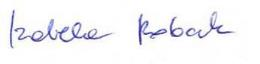 Izabela Kobak